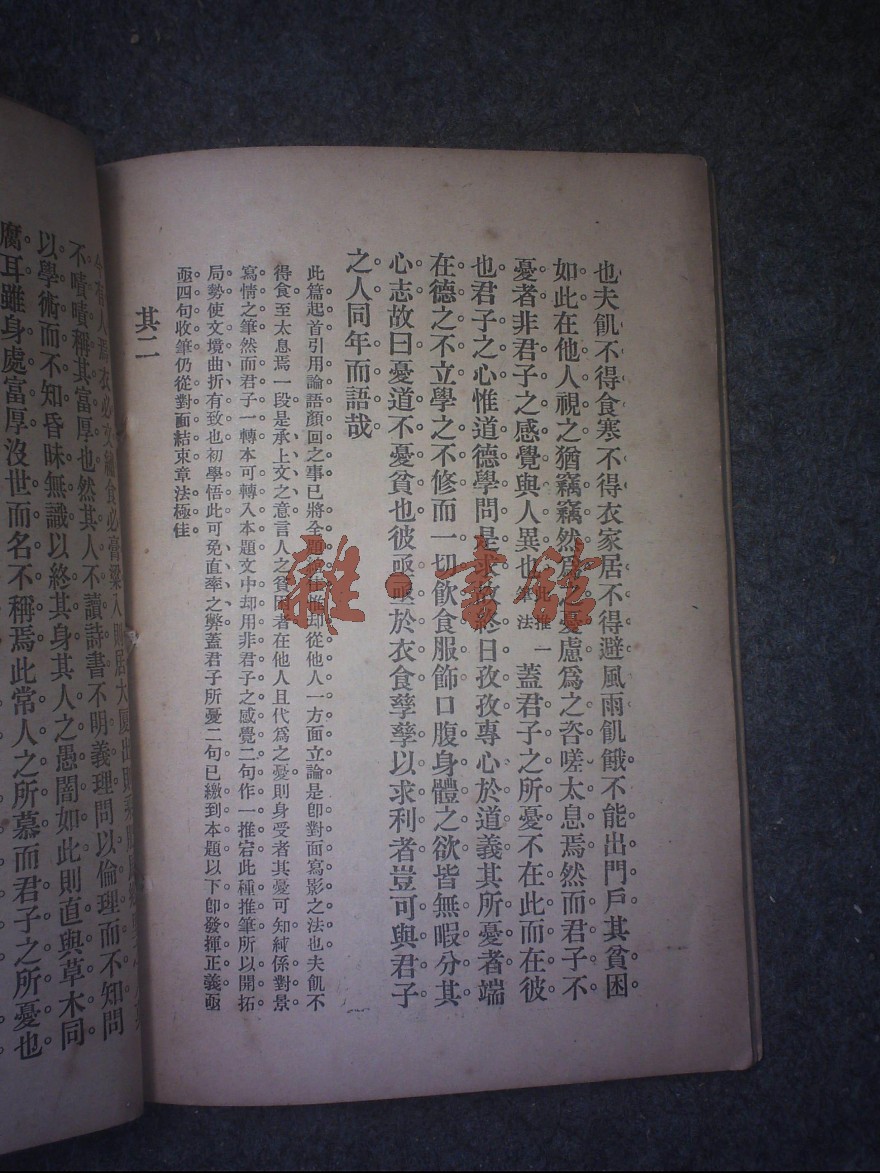 也夫飢不得食寒不得衣家居不得避風雨飢餓不能出門戶其貧困
如此在他人視之猶竊竊然爲之憂慮爲之咨嗟太息焉然而君子不
憂者非君子之感覺與人異也此推一筆法蓋君子之所憂不在此而在彼
也君子之心惟道德學問是求故終日孜孜專心於道義其所憂者端
在德之不立學之不修而一切飲食服飾口腹身體之欲皆無暇分其
心志故曰憂道不憂貧也彼亟亟於衣食孳孳以求利者豈可與君子
之人同年而語哉
此篇起首引用論語顏回之事已將全題却從他人一方面立論是卽對面寫影之法也夫飢不
得食至太息焉一段是承上文之意言人之貧困者在他人且代爲之憂則身受者其憂可知純係對景
寫情之筆然而君子一轉本可轉入本題文中却用非君子之感覺二句作一推宕此種推筆所以開拓
局勢使文境曲折有致也初學悟此可免直率之弊蓋君子所憂二句已繳到本題以下卽發揮正義亟
亟四句收筆仍從對面結束章法極佳
其二
今有人焉衣必文繡食必膏粱入則居大廈出則
不嘖嘖稱其富厚也然其人不讀詩書不明義理問以倫理而不知問
以學術而不知昏昧無識以終其身其人之愚闇如此則直與草木同
腐耳雖身處富厚沒世而名不稱焉此常人之所慕而君子之所憂也
雜·書館